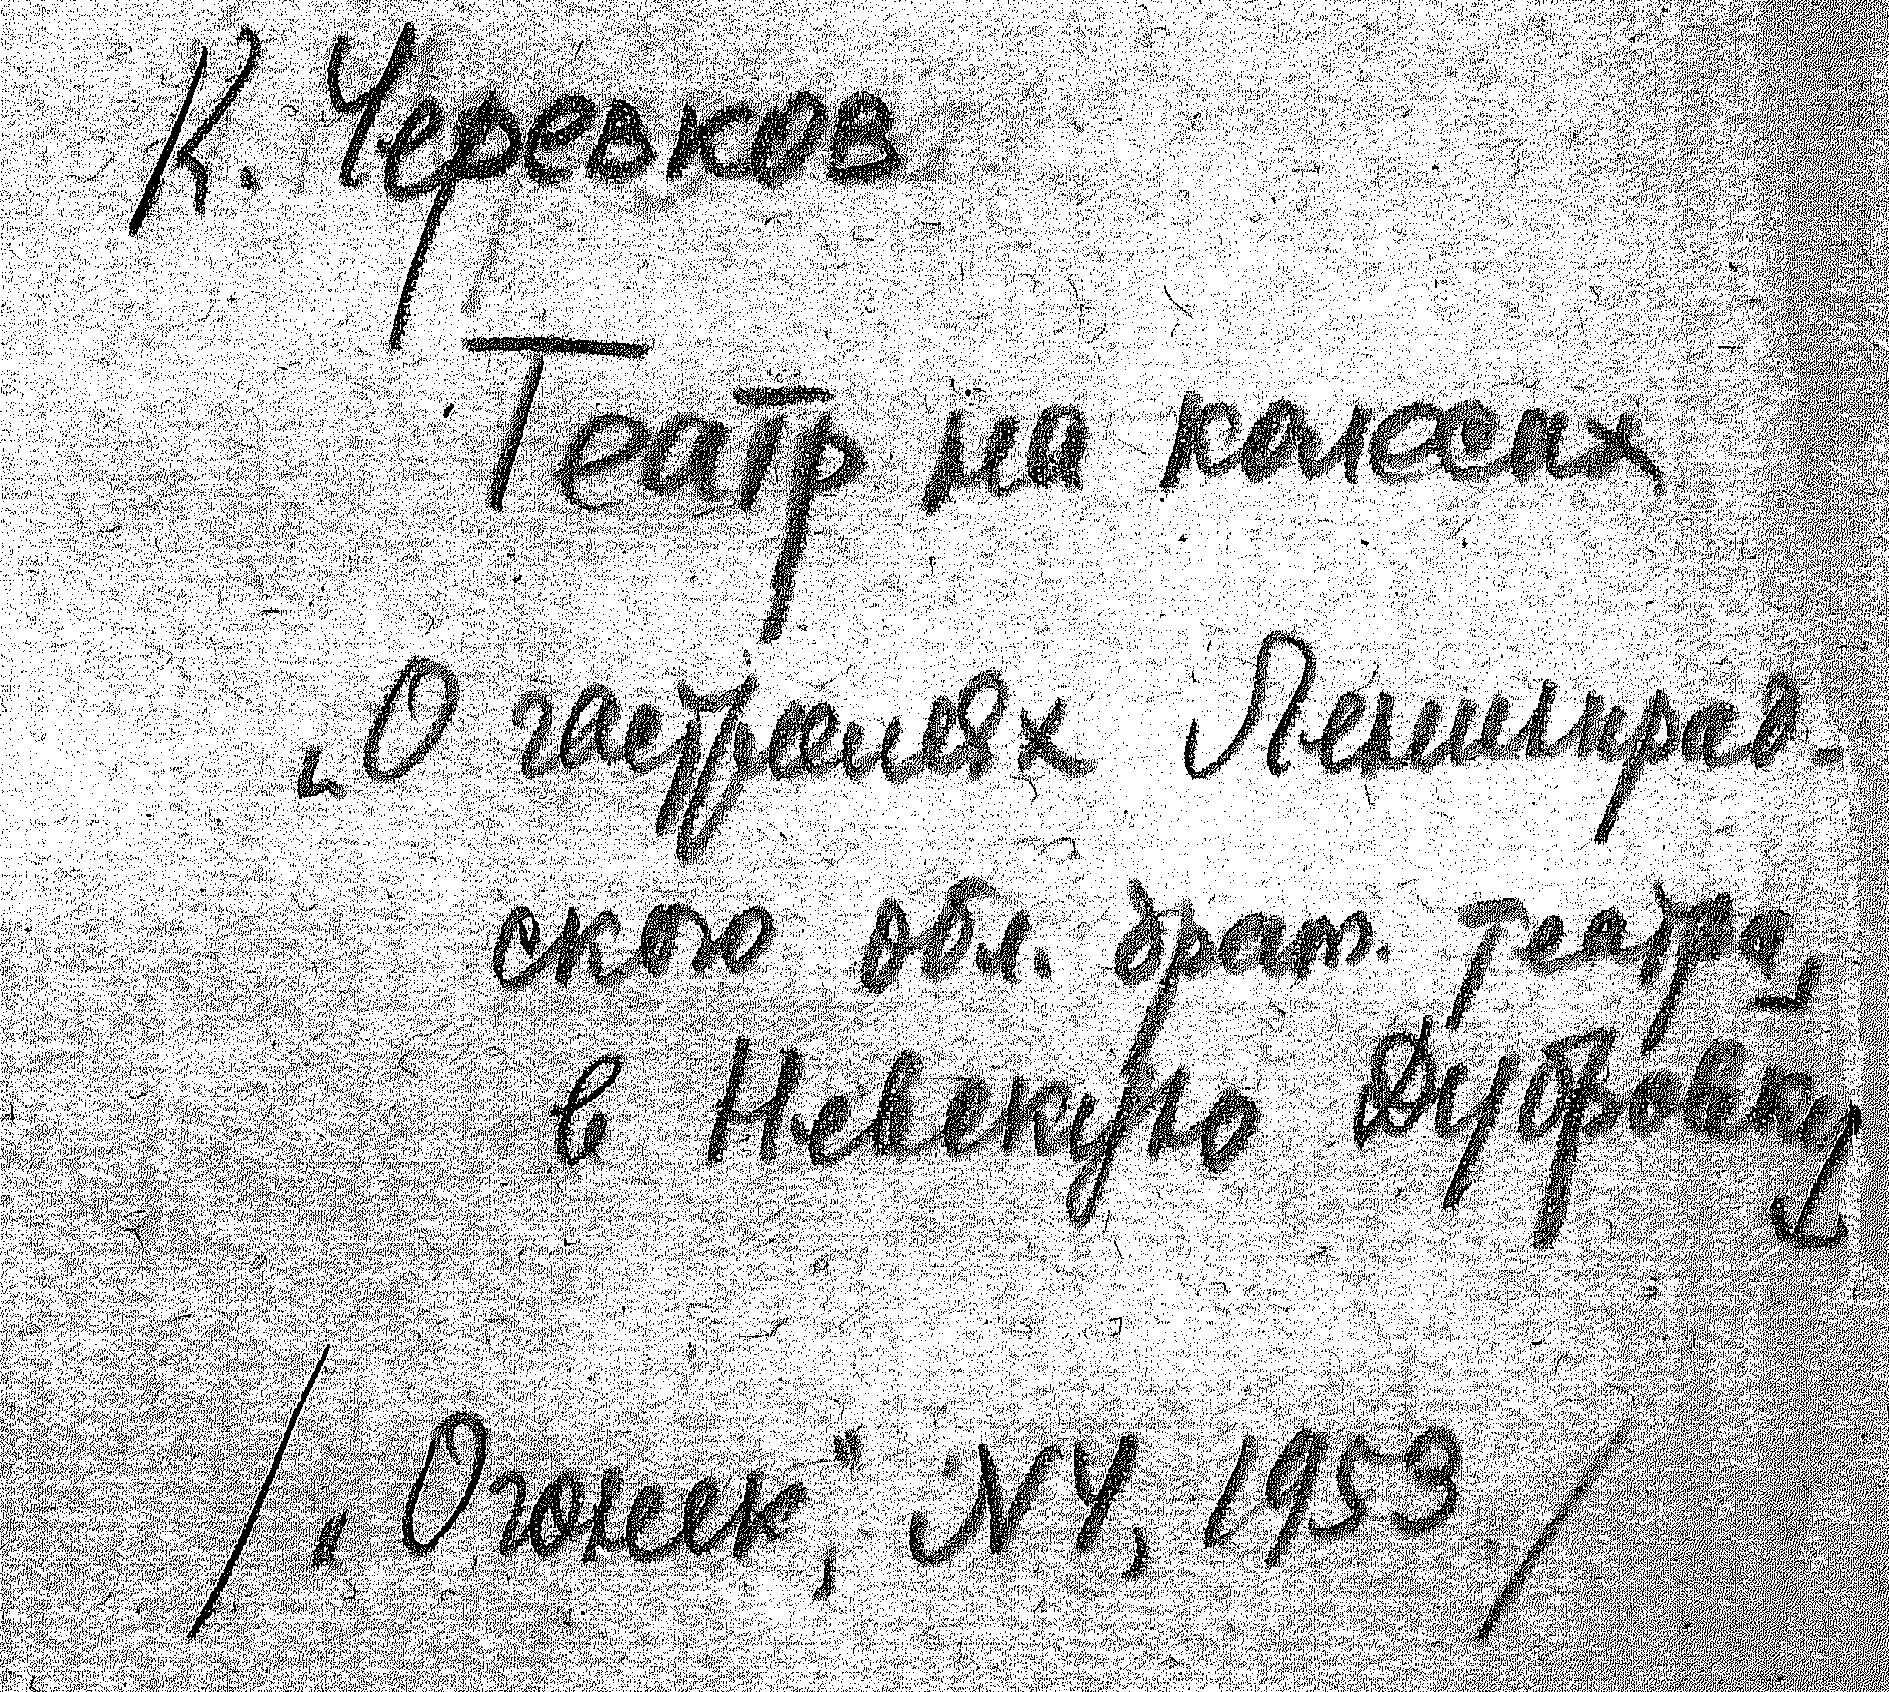 К. Черевков
Театр на колесах
„О гастролях Ленинград-
ского обл. драм. театра
в Невскую Дубровку
/„Огонек", №4, 1953/